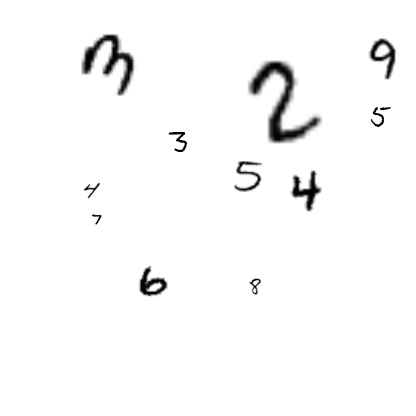 3 2 9
3 5
5 4
4
7
6 8